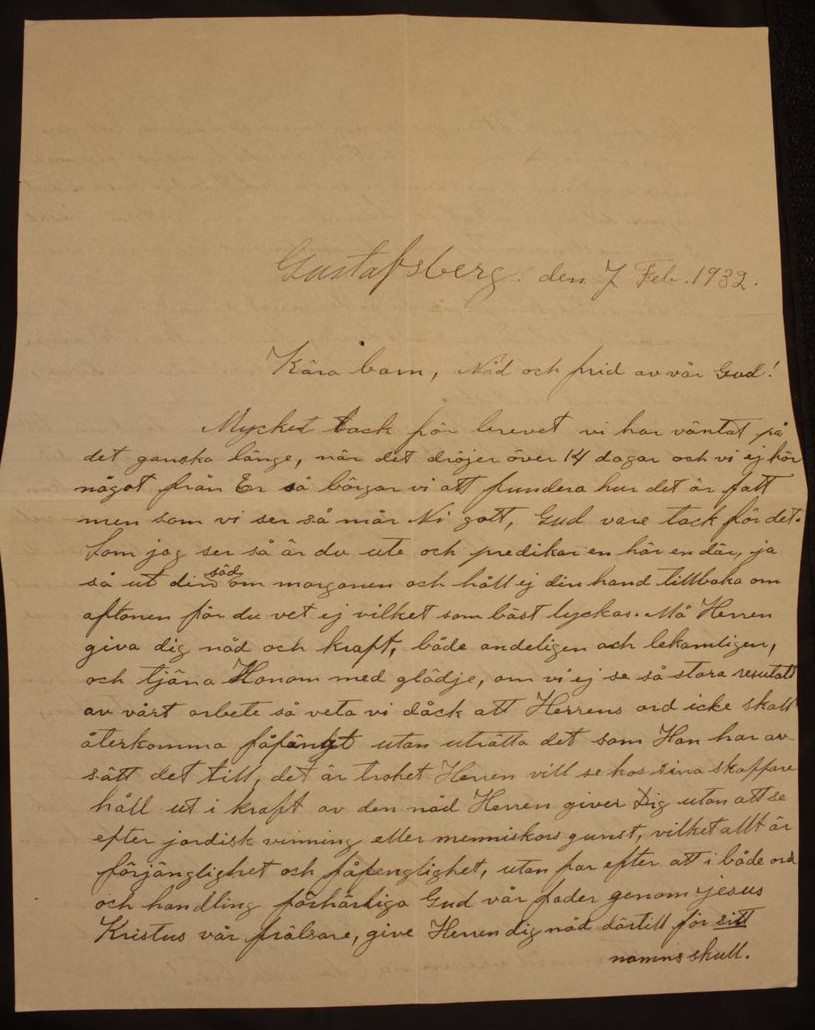 Gustafsberg. den 7 Feb. 1932.
Kära barn, Nåd och frid av vår Gud!
Mycket tack för brevet vi har väntat på
det ganska länge, när det dröjer över 14 dagar och vi ej hör
något från Er så börgar vi att fundera hur det är fatt
men som vi ser så mår Ni gott, Gud vare tack för det.
Som jag ser så är du ute och predikar en här en där, ja
så ut din säd om morgonen och håll ej din hand tillbaka om
aftonen för du vet ej vilket som bäst lyckas. Må Herren
giva dig nåd och kraft, både andeligen och lekamligen,
och tjäna Honom med glädje, om vi ej se så stora resutatt
av vårt arbete så veta vi dåck att Herrens ord icke skall
återkomma fåfängt utan uträtta det som Han har av
sått det till, det är trohet Herren vill se hos sina skaffare
håll ut i kraft av den nåd Herren giver Dig utan att se
efter jordisk vinning eller menniskors gunst, vilket allt är
förjänglighet och fåfenglighet, utan far efter att i både ord
och handling förhärliga Gud vår fader genom jesus
Kristus vår frälsare, give Herren dig nåd därtill för sitt
namns skull.